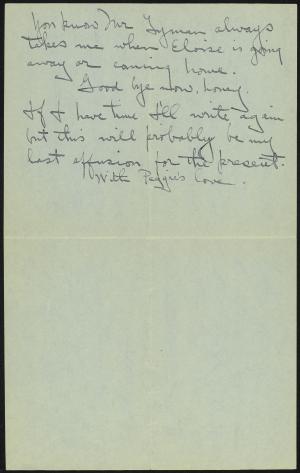 You know Mr Lyman always
takes me when Eloise is going
away or coming home.
Good bye now, honey.
If I have time I'll write again
but this will probably be my
last effusion for the present.
With Peggie's love.